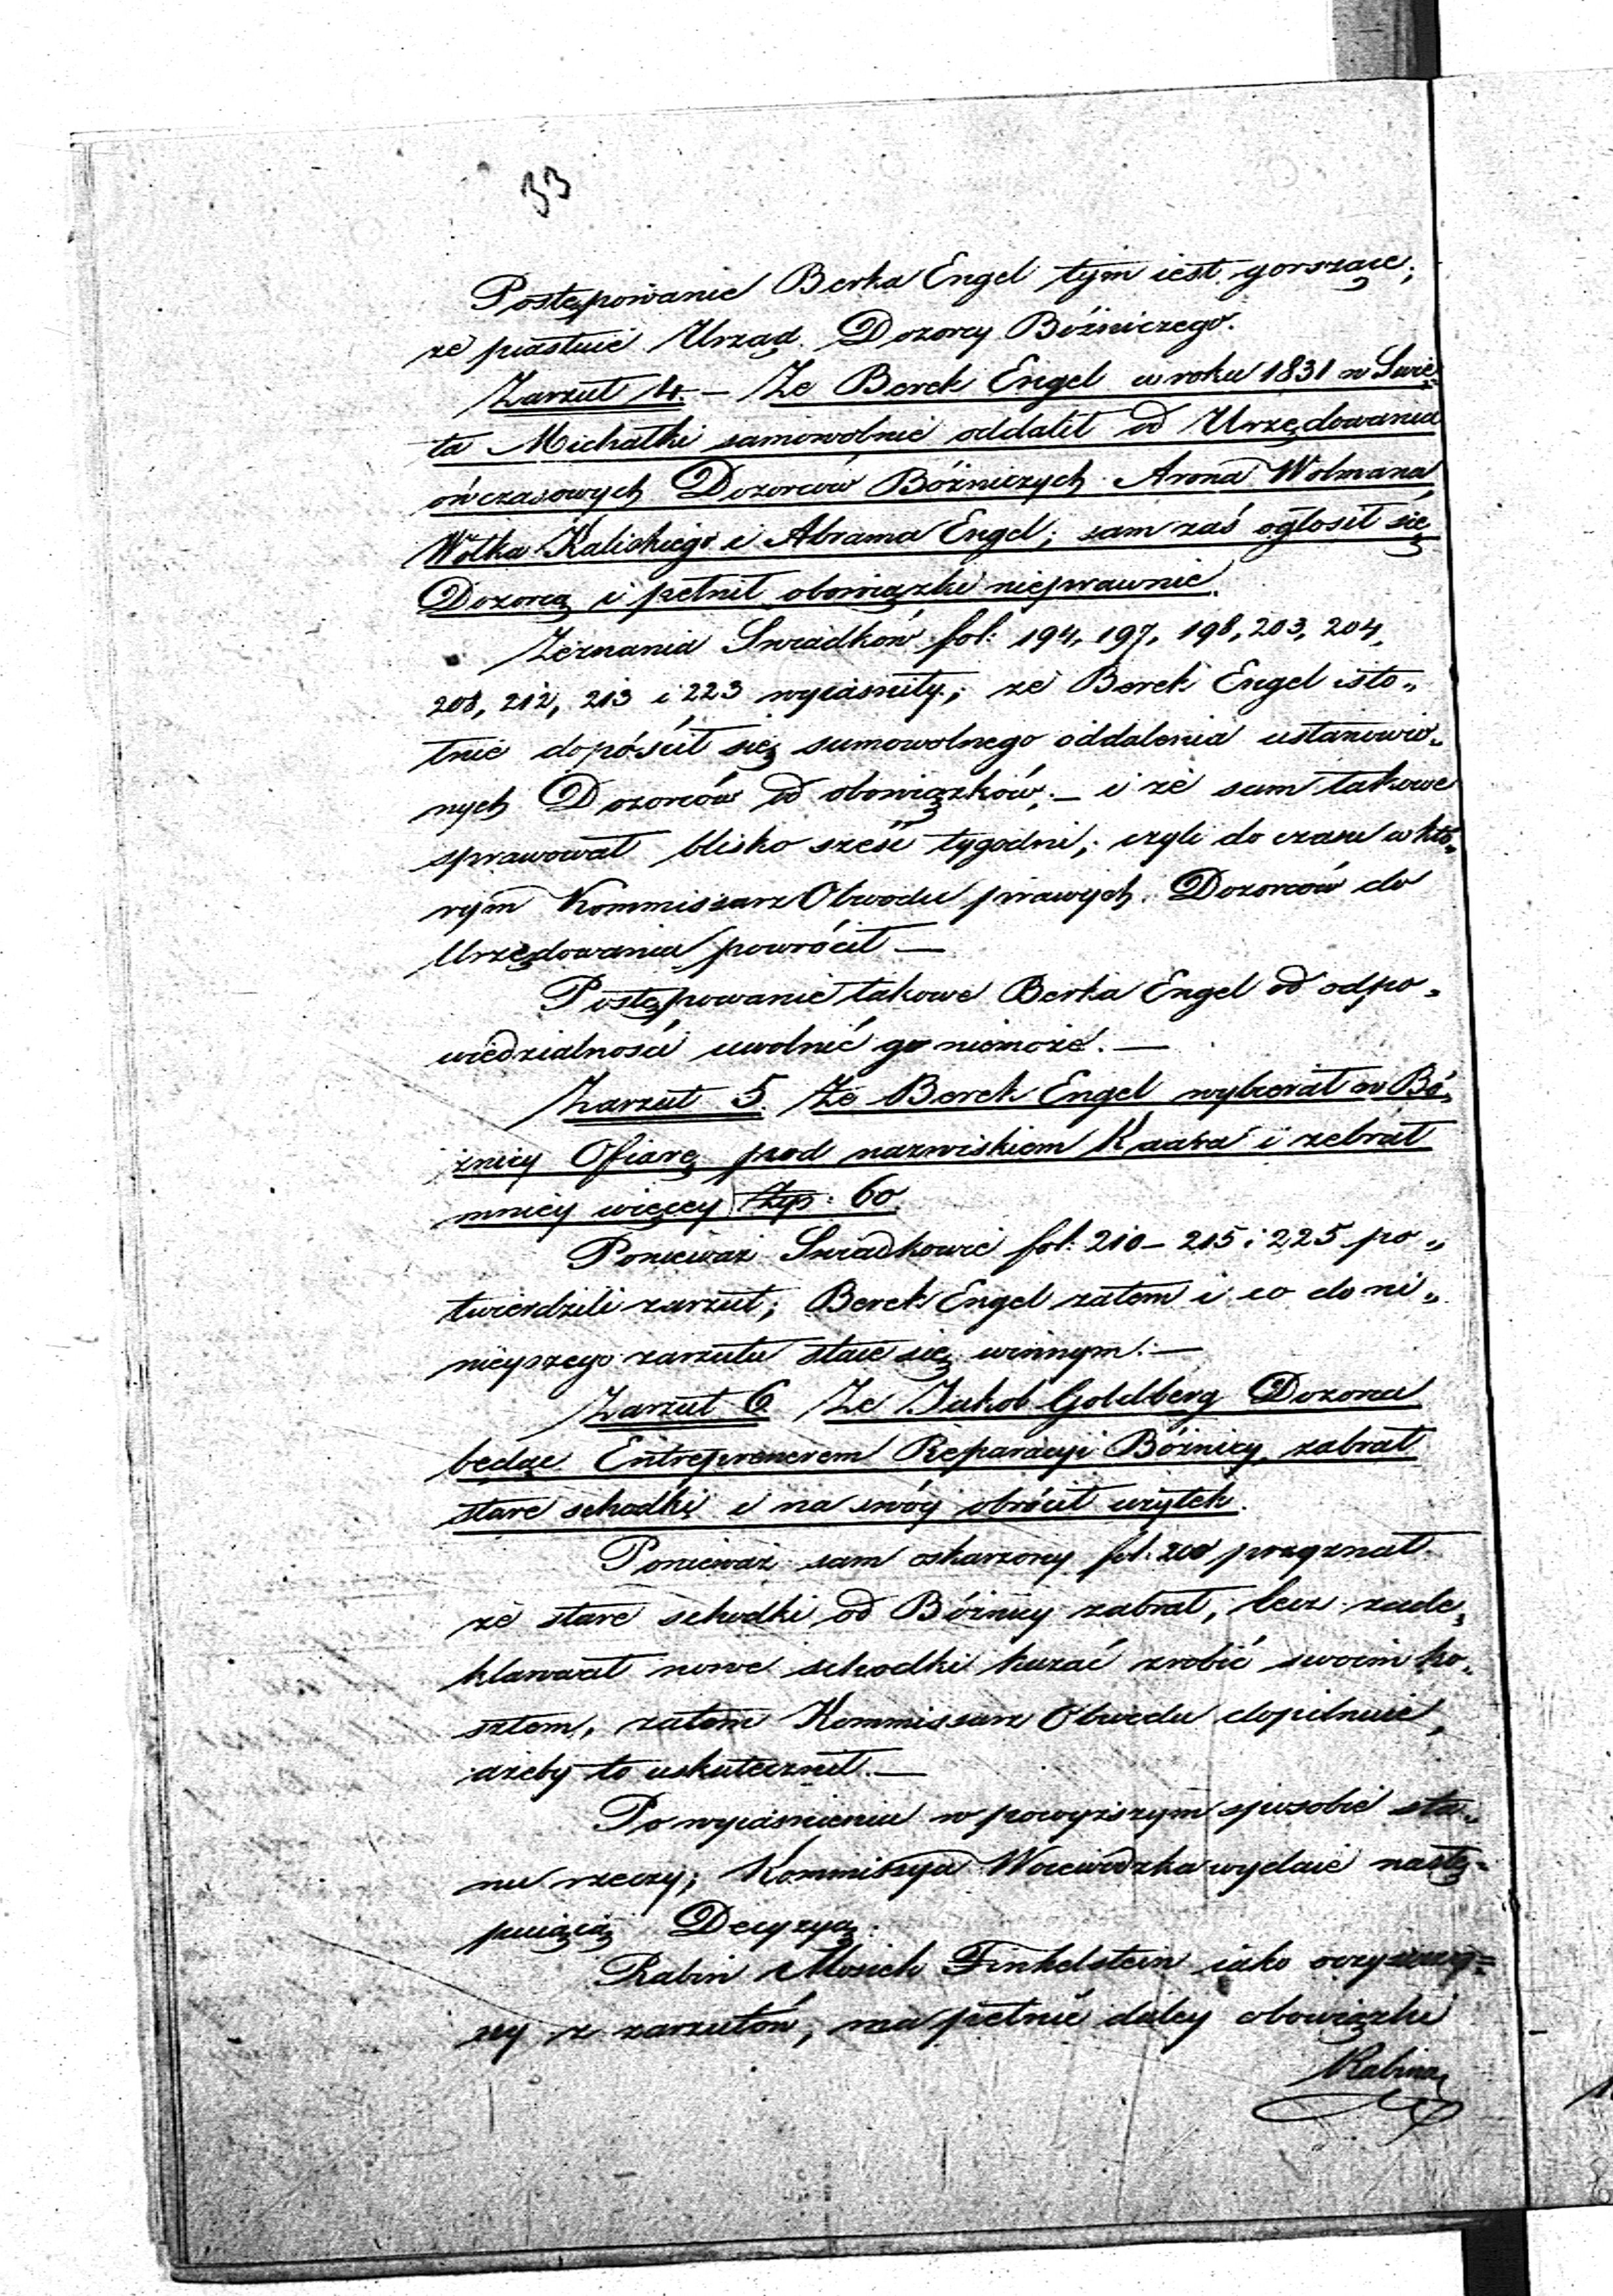 33
Postępowanie Berka Engel tym iest gorszące,
że piastuie Urząd Dozorcy Bóżniczego.
Zarzut 4. – Że Berek Engel w roku 1831 w Swię-
ta Michałki samowolnie oddalił od Urzędowania
ówczasowych Dozorców Bóżniczych Arona Wolmana,
Wolka Kaliskiego i Abrama Engel; sam zaś ogłosił się
Dozorcą i pełnił obowiązki nieprawnie.
Zeznania Swiadków fol: 194, 197, 198, 203, 204,
208, 212, 213 i 223 wyiaśniły; że Berek Engel isto„
tnie dopóścił się samowolnego oddalenia ustanowio„
nych Dozorców od obowiązków; – i że sam takowe
sprawował blisko sześć tygodni; czyli do czasu w któ„
rym Kommissarz Obwodu prawych Dozorców do
Urzędowania powrócił —
Postępowanie takowe Berka Engel od odpo„
wiedzialności uwolnić go niemoże. —
Zarzut 5. Że Berek Engel wybierał w Bó„
żnicy Ofiarę pod nazwiskiem Kaaba i zebrał
mniey więcey Złp: 60.
Ponieważ Swiadkowie fol: 210 – 215 i 225 po„
twierdzili zarzut; Berek Engel zatem i co do ni„
nieyszego zarzutu staie się winnym. —
Zarzut 6 Że Jakob Goldberg Dozorca
będąc Entreprenerem Reparacyi Bóżnicy, zabrał
stare schodki i na swóy obrócił użytek.
Ponieważ sam oskarżony fol: 200 przyznał
że stare schodki od Bóżnicy zabrał, lecz zade„
klarował nowe schodki kazać zrobić swoim ko„
sztem, zatem Kommissarz Obwodu dopilnuie,
ażeby to uskutecznił. —
Po wyiaśnieniu w powyższym sposobie sta„
nu rzeczy; Kommissya Woiewódzka wydaie nastę=
puiącą Decyzyą.
Rabin Mosiek Finkelstein iako oczyszczo=
ny z zarzutów, ma pełnić daley obowiązki
Rabina